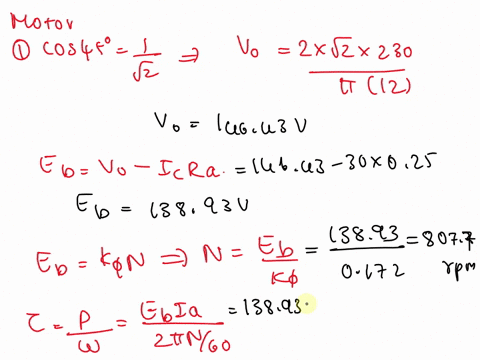 Motor
① cos45° = 1/√2 ⇒ V₀ = 2×√2×230 / π(√2)
V₀ = 146.43V
E_b = V₀ – I_c R_a. = 146.43 – 30×0.25
E_b = 138.93V
E_b = KϕN ⇒ N = E_b/Kϕ = 138.93/0.172 = 807.7 rpm
τ = P/ω = E_b I_a / 2πN/60 = 138.93